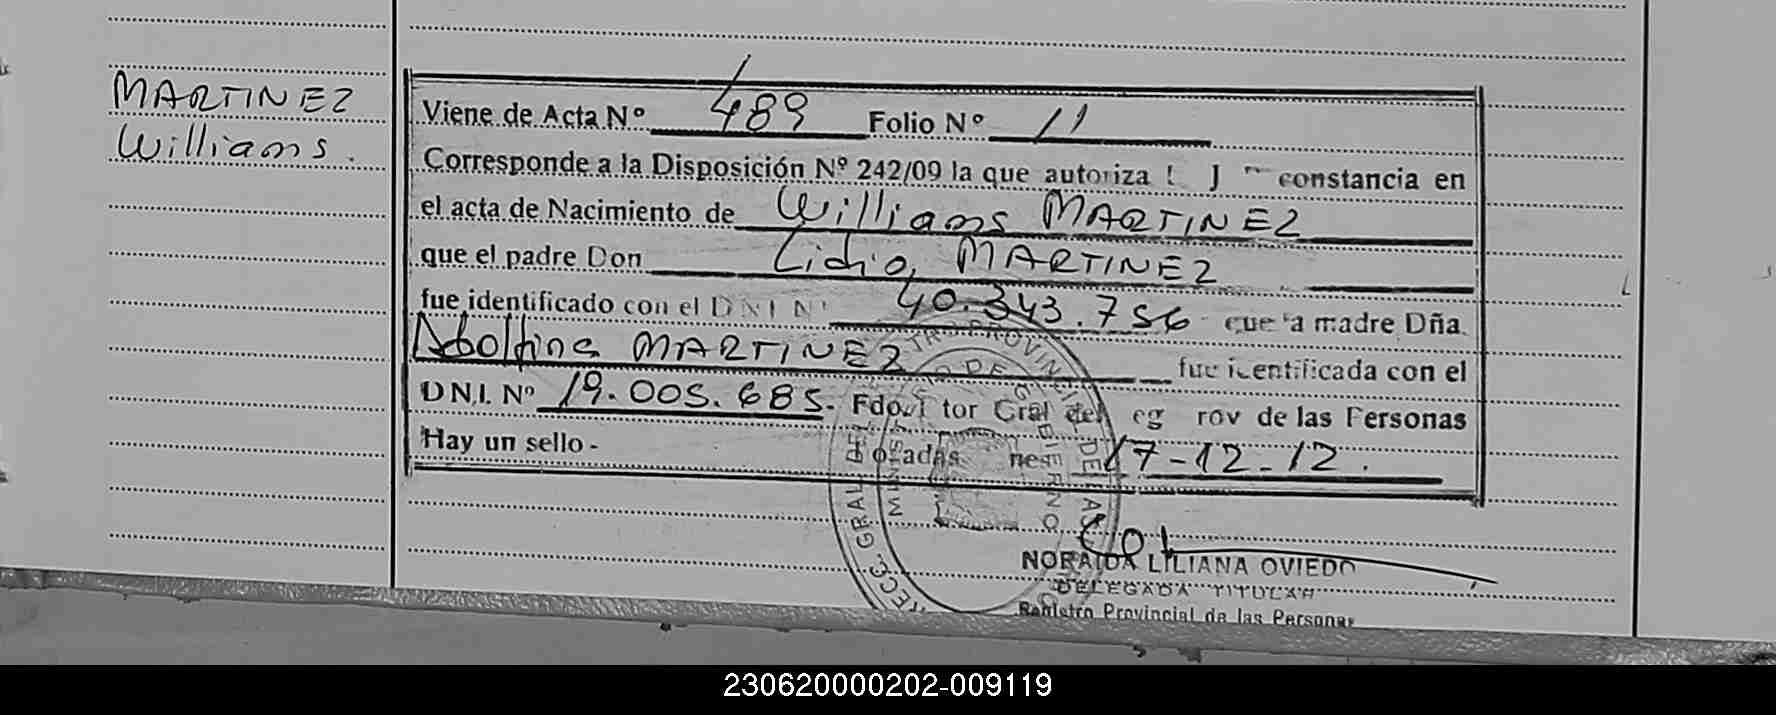 MARTINEZ
Williams.
Viene de Acta Nº 489 Folio Nº 11
Corresponde a la Disposición Nº 242/09 la que autoriza constancia en
el acta de Nacimiento de Williams MARTINEZ
que el padre Don Lidio MARTINEZ
fue identificado con el DNI Nº 40.343.756 que la madre Dña.
Adolfina MARTINEZ fue identificada con el
DNI. Nº 19.005.685. Fdo. tor Gral del eg rov de las Personas
Hay un sello - osadas nes 17-12-12.
NORAIDA LILIANA OVIEDO
DELEGADA TITULAR
Registro Provincial de las Personas
230620000202-009119